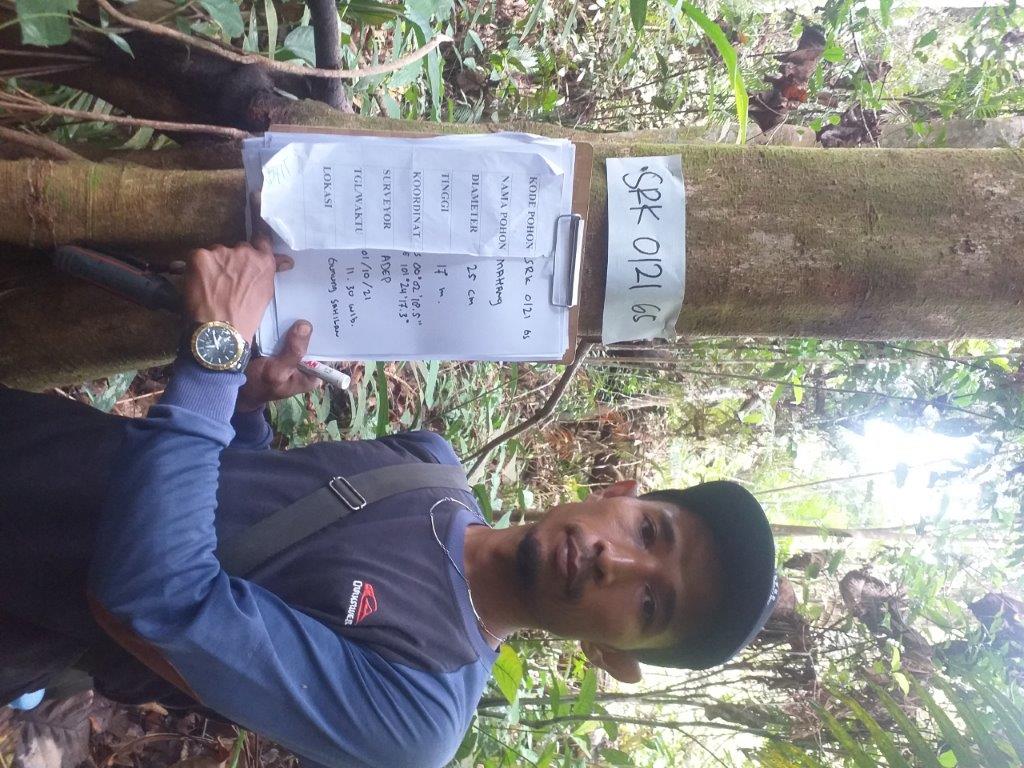 SRK 0121 GS
KODE POHON SRK 0121 GS
NAMA POHON MAHANG
DIAMETER 25 cm
TINGGI 17 m.
KOORDINAT S 00°02'18.5"
E 101°24'17.3"
SURVEYOR ADEP
TGL/WAKTU 01/10/21
11.30 WIB.
LOKASI GUNUNG SAHILAN